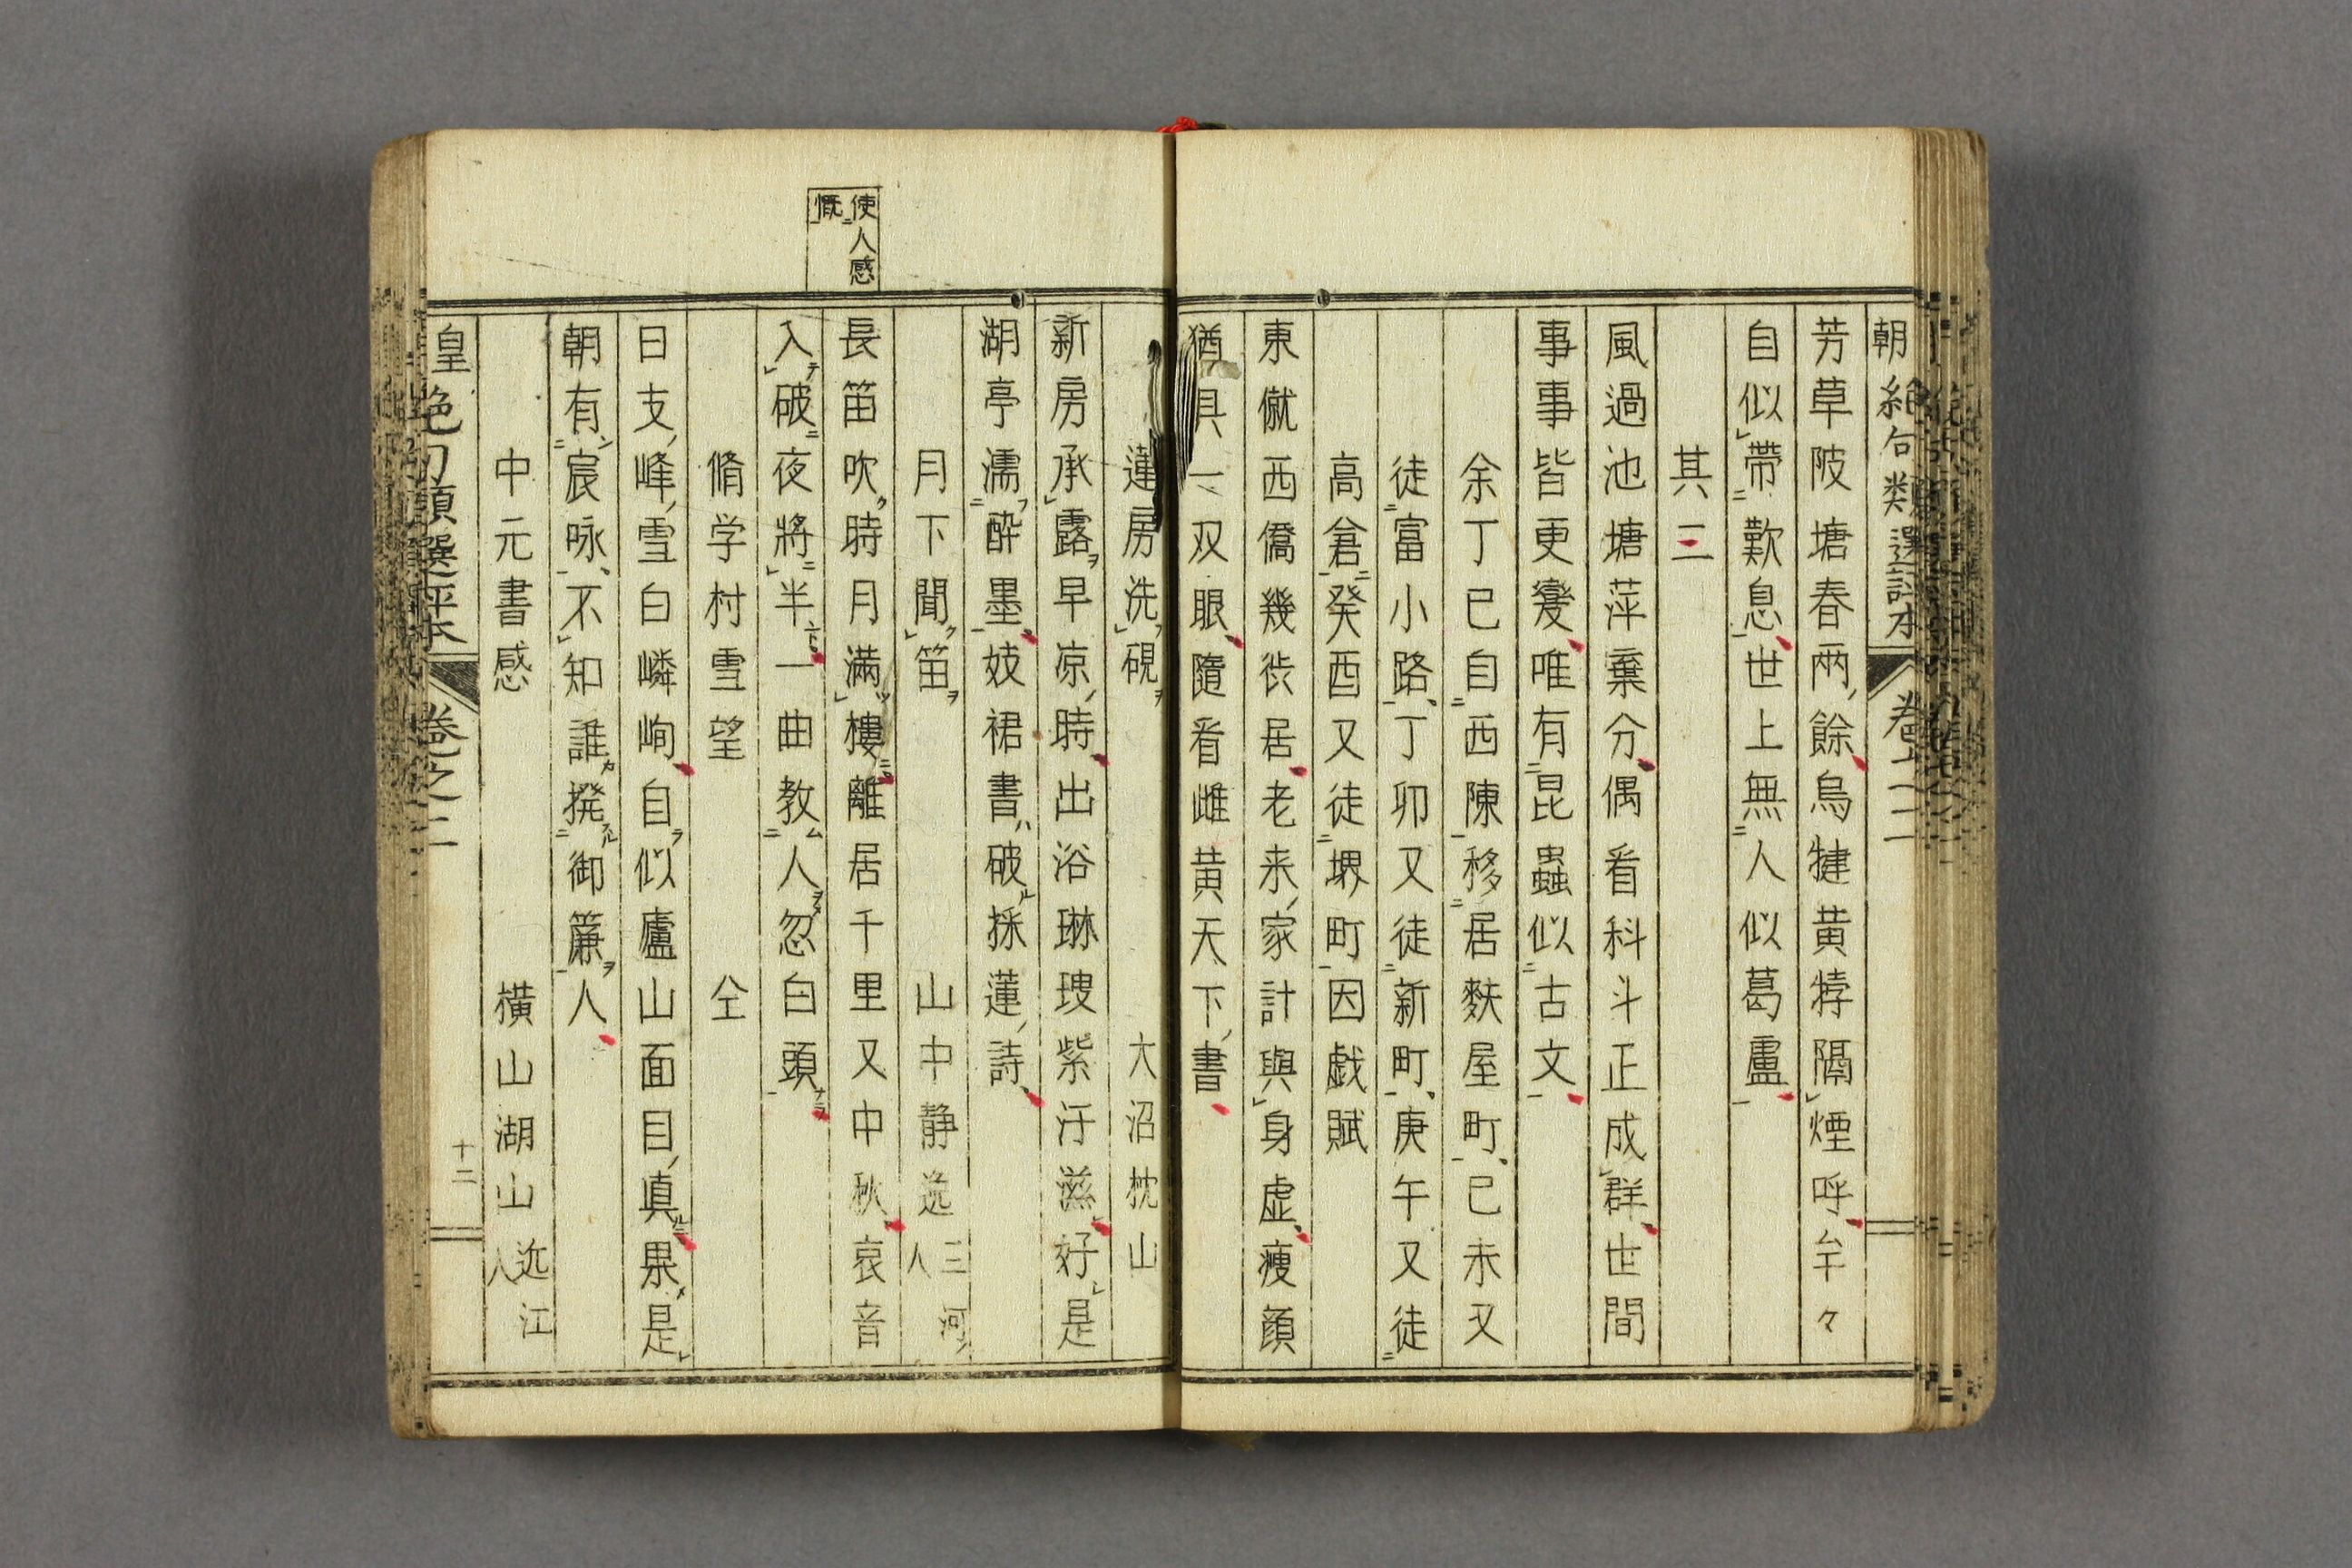 朝絶句類選評本 卷之二
芳草陂塘春雨餘烏犍黄犉隔煙呼牟々
自似帶歎息世上無人似葛盧
其三
風過池塘萍棄分偶看科斗正成群世間
事事皆更變唯有昆蟲似古文
余丁巳自西陳移居麩屋町己未又
徒富小路丁卯又徒新町庚午又徒
高倉癸酉又徒堺町因戯賦
東僦西僑幾徙居老来家計與身虚痩顔
猶具一双眼隨看雌黄天下書
蓮房洗硯 大沼枕山
新房承露早凉時出浴琳琅紫汗滋好是
湖亭濡酔墨妓裙書破採蓮詩
月下聞笛 山中静逸 三河人
長笛吹時月満樓離居千里又中秋哀音
入破夜將半一曲教人忽白頭
使人感慨
脩学村雪望 仝
日支峰雪白嶙峋自似廬山面目真果是
朝有宸咏不知誰撥御簾人
中元書感 横山湖山 近江人
皇 絶句類選評本 卷之二
十二